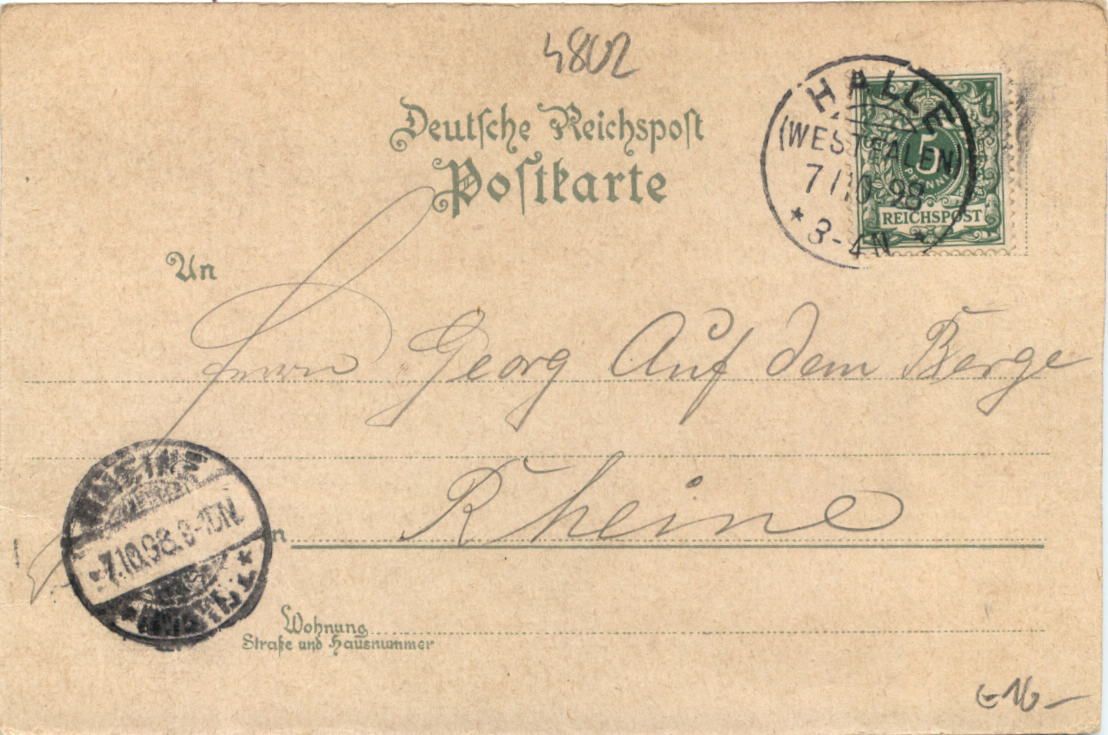 4802
Deutsche Reichspost
Postkarte
HALLE
(WESTFALEN)
7/10 98
* 3-4N *
5
PFENNIG
REICHSPOST
An
Herrn Georg Auf dem Berge
Rheine
RHEINE
*7.10.98.9-10N.*
n
Wohnung
Straße und Hausnummer
16-